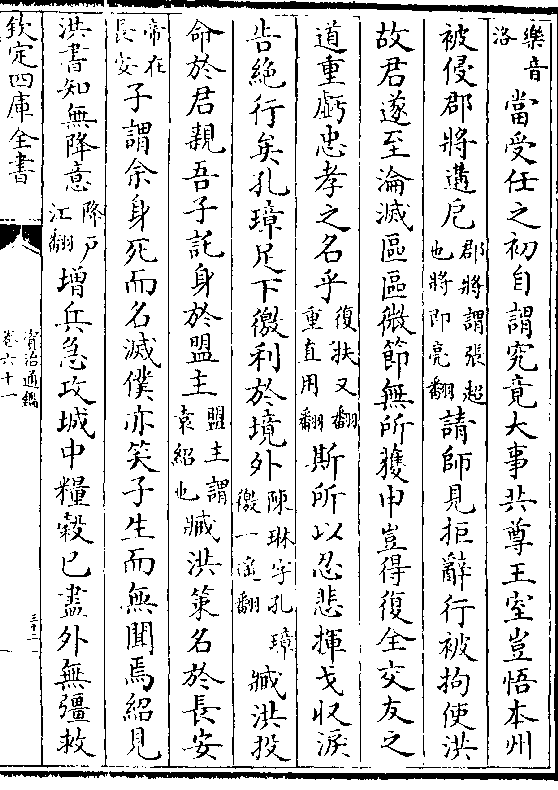 樂音洛當受任之初自謂究竟大事共尊王室豈悟本州
被侵郡將遘戹郡將謂張超也將即亮翻請師見拒辭行被拘使洪
故君遂至淪滅區區微節無所獲申豈得復全交友之
道重虧忠孝之名乎復扶又翻重直用翻斯所以忍悲揮戈収淚
告絶行矣孔璋足下徼利於境外陳琳字孔璋徼一遥翻臧洪投
命於君親吾子託身於盟主盟主謂袁紹也臧洪策名於長安
帝在長安子謂余身死而名滅僕亦笑子生而無聞焉紹見
洪書知無降意降戸江翻增兵急攻城中糧穀已盡外無彊救
欽定四庫全書
資治通鑑
卷六十一
三十二